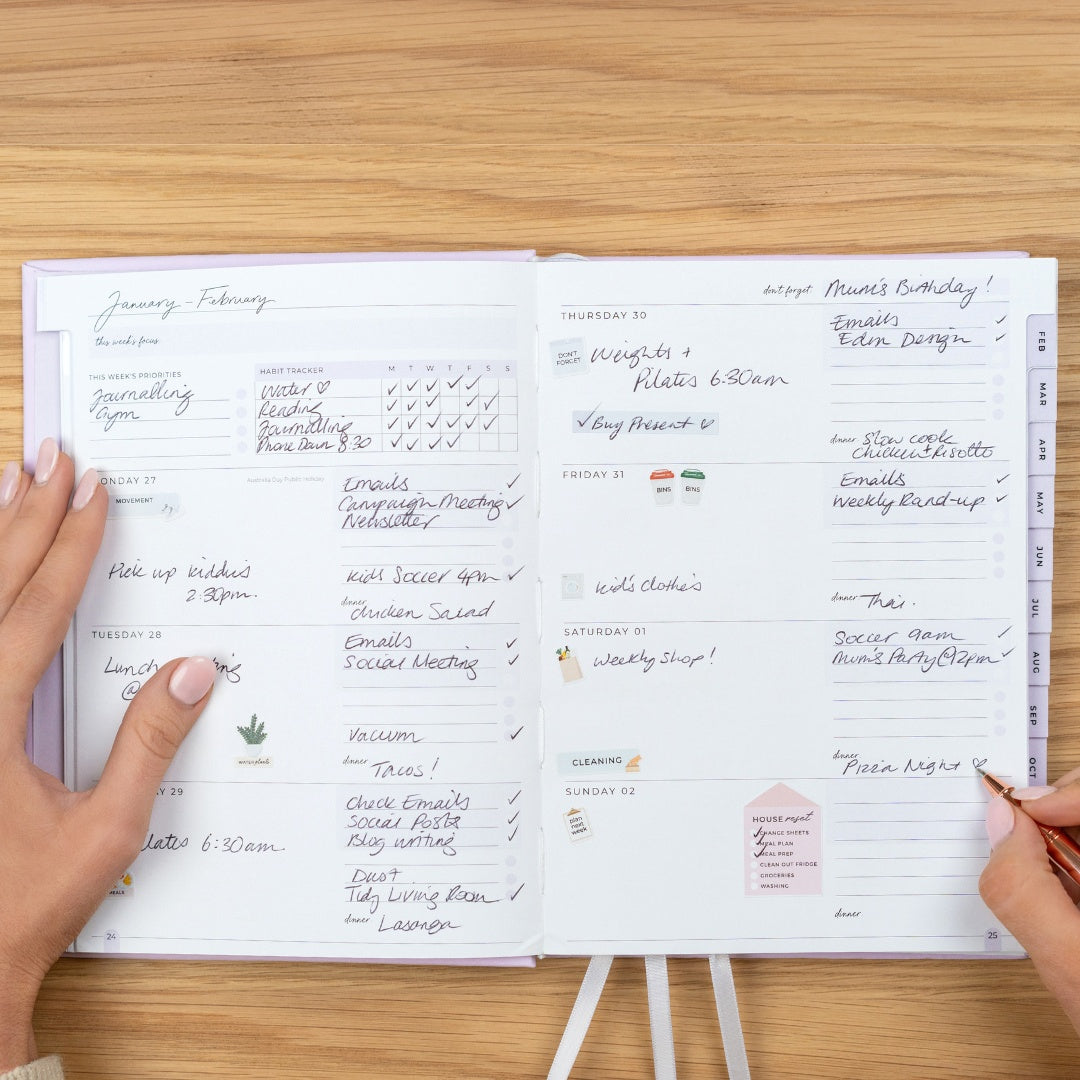 January - February
this week's focus
THIS WEEK'S PRIORITIES
Journalling
Gym
HABIT TRACKER M T W T F S S
Water ♡
Reading
Journalling
Phone Down 8:30
ONDAY 27
Australia Day Public Holiday
MOVEMENT
Pick up kiddies
2:30pm.
Emails ✓
Campaign Meeting ✓
Newsletter
Kids Soccer 4pm ✓
dinner Chicken Salad
TUESDAY 28
Lunch
@
water plants
Emails ✓
Social Meeting ✓
Vacuum ✓
dinner Tacos!
29
lates 6:30am
MEALS
Check Emails ✓
Social Posts ✓
Blog writing ✓
Dust
Tidy Living Room ✓
dinner Lasanga
24
don't forget Mum's Birthday!
THURSDAY 30
DON'T
FORGET
Weights +
Pilates 6:30am
✓ Buy Present ♡
Emails ✓
Eden Design ✓
dinner Slow cook
Chicken + Risotto
FRIDAY 31
BINS BINS
Kid's Clothes
Emails ✓
Weekly Round-up ✓
dinner Thai.
SATURDAY 01
Weekly Shop!
CLEANING
Soccer 9am ✓
Mum's Party @ 12pm ✓
dinner Pizza Night ♡
SUNDAY 02
plan
next
week
HOUSE reset
✓ CHANGE SHEETS
MEAL PLAN
✓ MEAL PREP
CLEAN OUT FRIDGE
GROCERIES
WASHING
dinner
25
FEB
MAR
APR
MAY
JUN
JUL
AUG
SEP
OCT